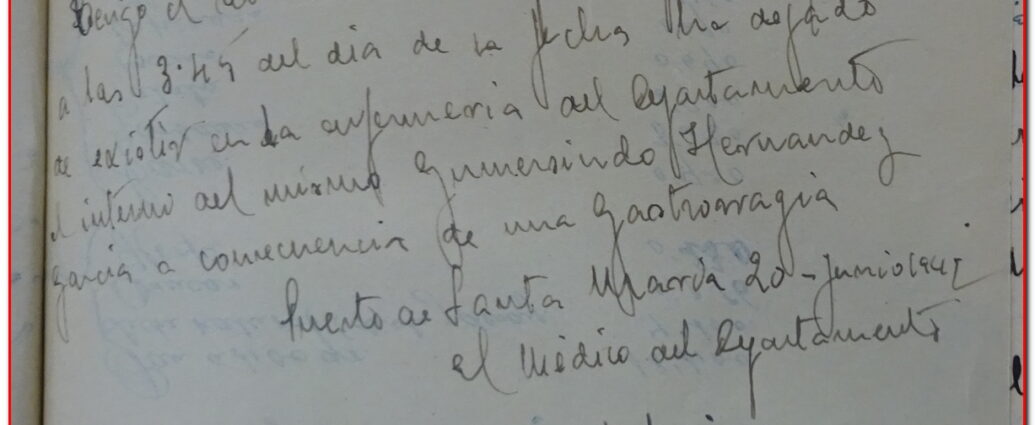 Tengo el
a las 3.45 del dia de la fecha ha dejado
de existir en la enfermeria del Departamento
el interno del mismo Gumersindo Hernandez
Garcia a consecuencia de una gastrorragia
Puerto de Santa Maria 20 - Junio 1941
El Médico del Departamento